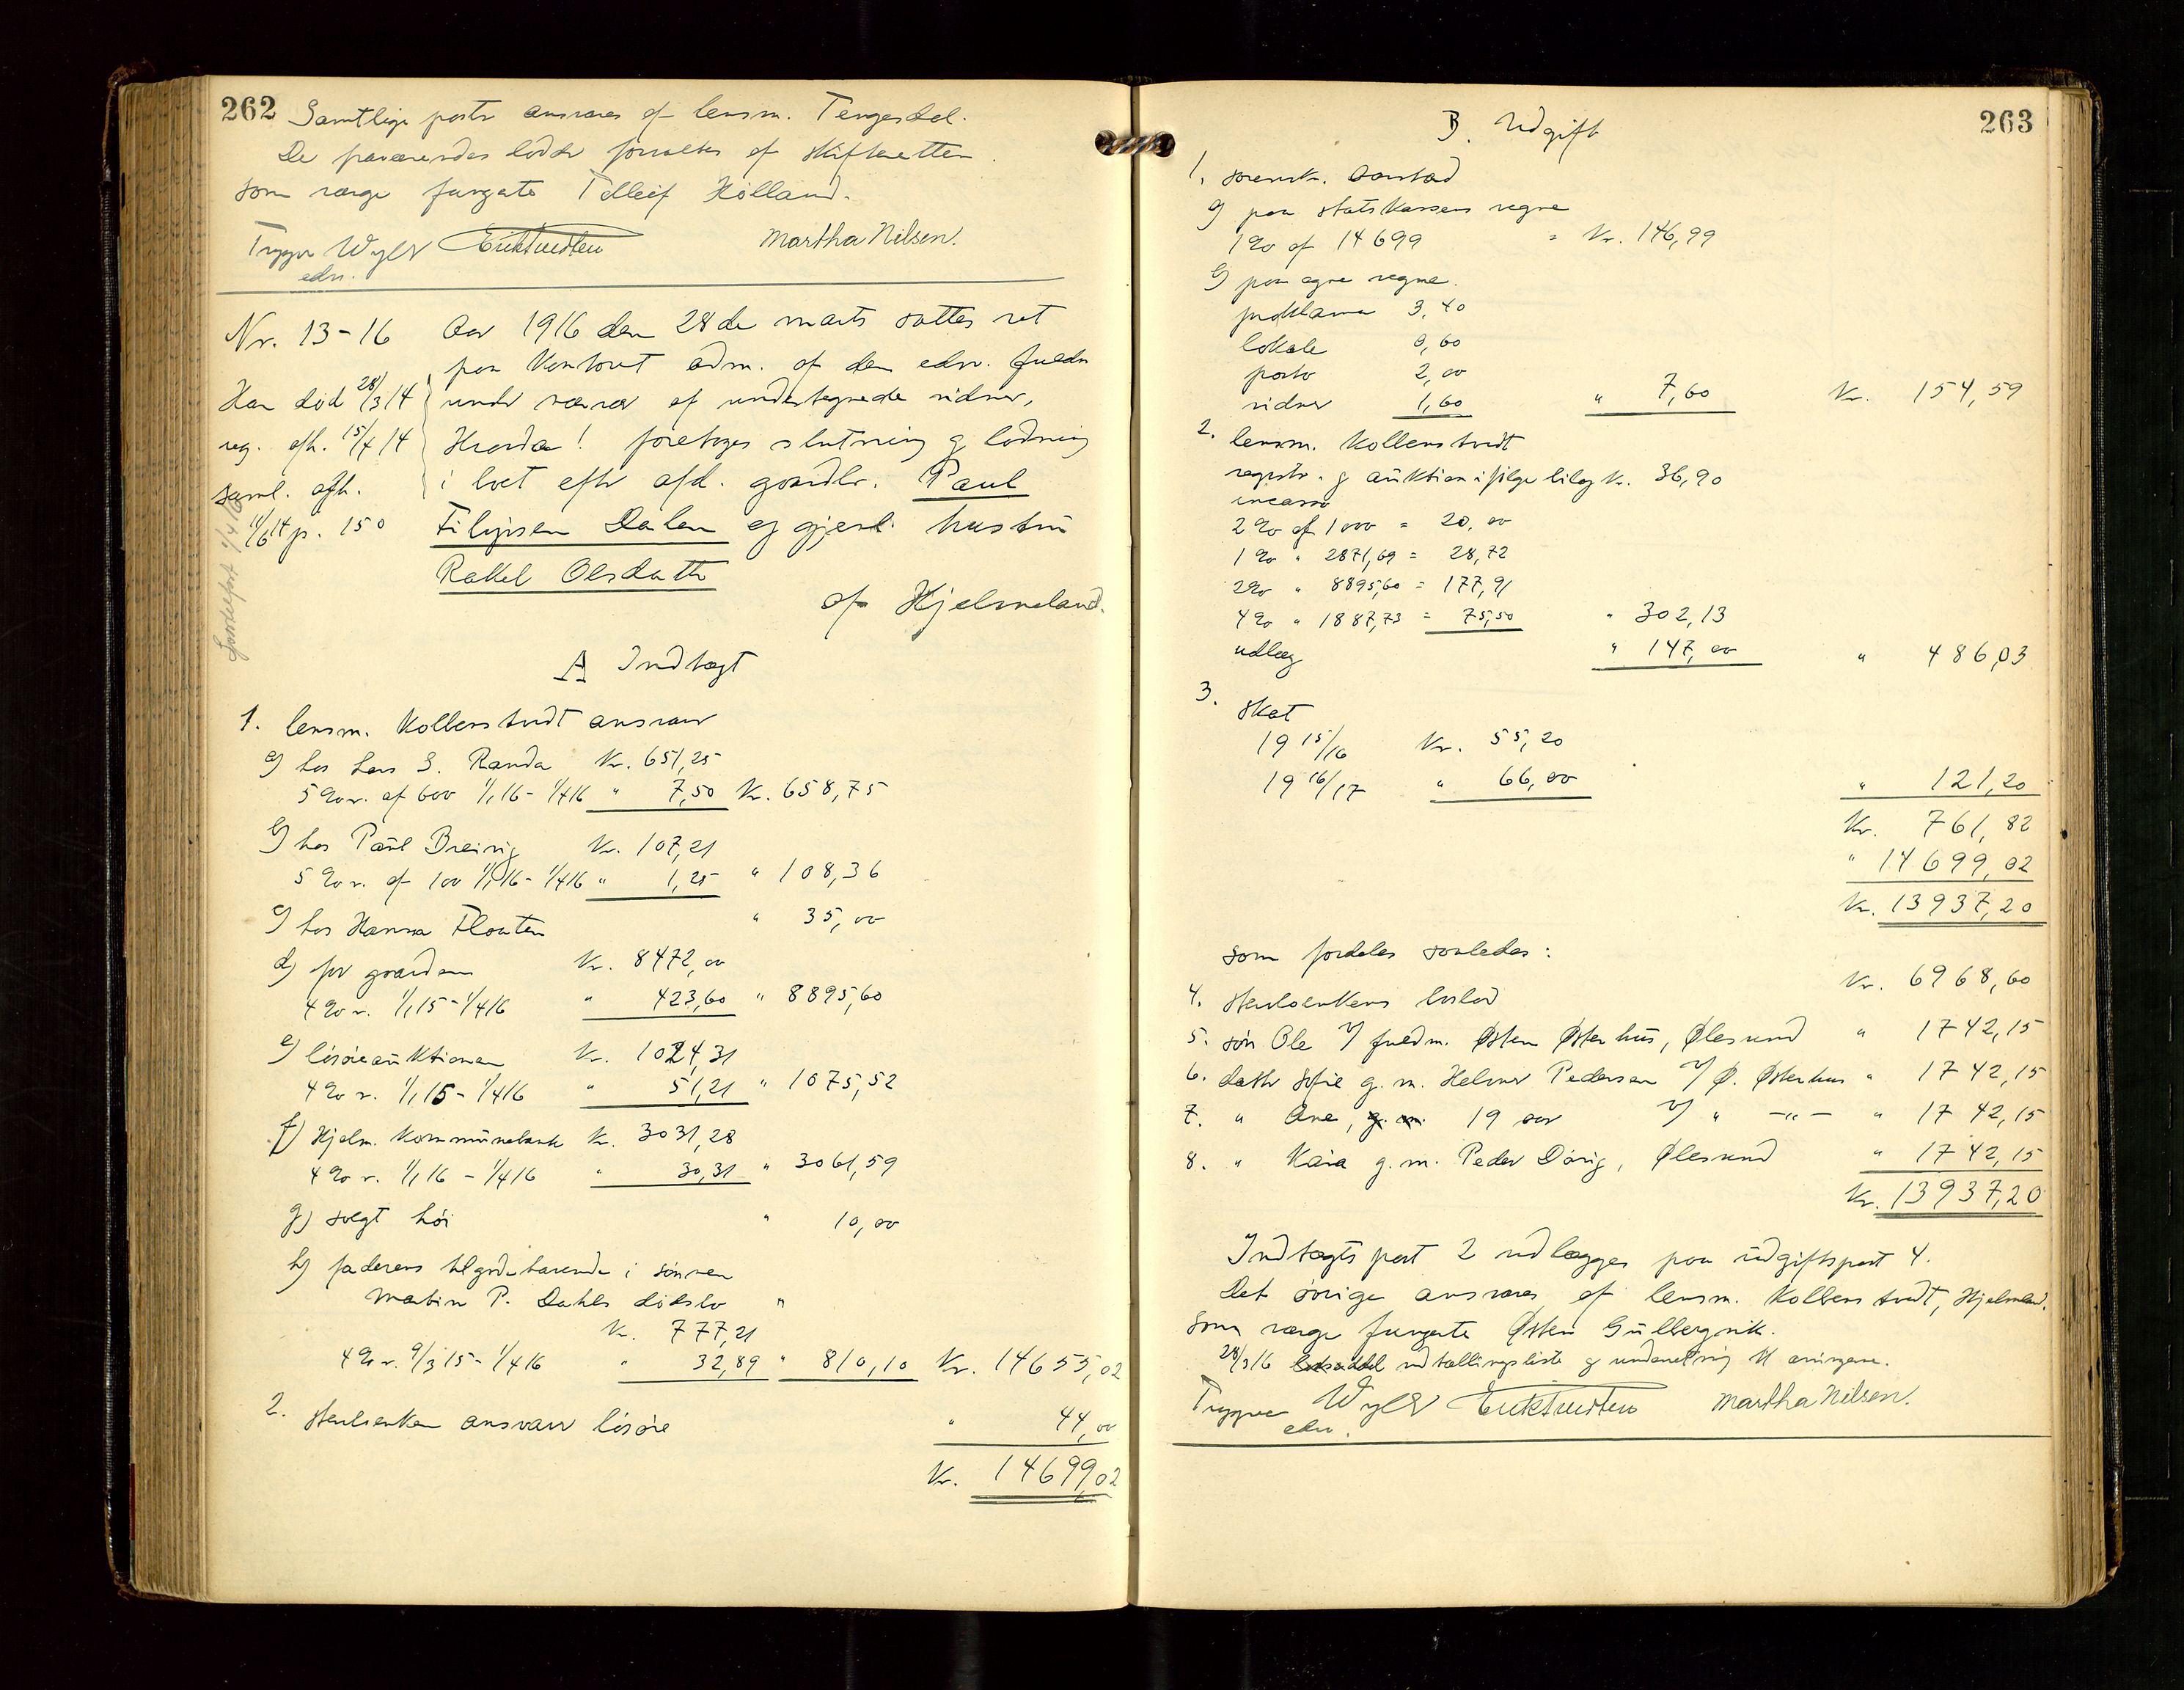 262
Samtlige poster ansvares af lensm. Tengesdal.
De fraværendes lodder forvaltes af skifteretten.
som værge fungerte Tolleif Helland.
Trygve Wyller Erik Knudsen Martha Nilsen.
edsv.
Nr. 13-16 Aar 1916 den 28de marts sattes ret
paa kontoret adm. af den edsv. fuldm
Han død 28/3 14 under nærvær af undertegnede vidner,
reg. afh. 15/4 14 Hvorda! foretoges slutning og lodning
saml. afh. i boet efter afd. gaardbr. Paul
11/6 14 p. 150 Filipsen Dalen og gjenl. hustru
Rakel Olsdatter
af Hjelmeland.
A Indtægt
1. lensm. Kollenstvedt ansvarer
a) hos Lars S. Randa Kr. 651,25
5 % r. af 600 1/1 16 - 1/4 16 " 7,50 Kr. 658,75
b) hos Paul Breivig Kr. 107,21
5 % r. af 100 1/1 16 - 1/4 16 " 1,25 " 108,36
c) hos Hanna Floaten " 35,00
d) for gaarden Kr. 8472,00
4 % r. 1/1 15 - 1/4 16 " 423,60 " 8895,60
e) løsøreauktionen Kr. 1024,31
4 % r. 1/1 15 - 1/4 16 " 51,21 " 1075,52
f) Hjelm. Kommunebank Kr. 3031,28
4 % r. 1/1 16 - 1/4 16 " 30,31 " 3061,59
g) solgt høi " 10,00
h) faderens tilgodehavende i sønnen
Martin P. Dahls dødsbo "
Kr. 777,21
4 % r. 9/3 15 - 1/4 16 " 32,89 " 810,10 Kr. 14655,02
2. Stervbenken ansvarer løsøre " 44,00
Kr. 14699,02
263
B. Udgift
1. sorensk. Aarstad
a) paa statskassens regne
1 % af 14699 = Kr. 146,99
b) paa egne regne.
proklama 3,40
lokale 0,60
porto 2,00
vidner 1,60 " 7,60 Kr. 154,59
2. lensm. Kollenstvedt
registr. og auktion ifølge bilag Kr. 36,90
incasso
2 % af 1000 = 20,00
1 % " 2871,69 = 28,72
2 % " 8895,60 = 177,91
4 % " 1887,73 = 75,50 " 302,13
udlæg " 147,00 " 486,03
3. Skat
19 15/16 Kr. 55,20
19 16/17 " 66,00 " 121,20
Kr. 761,82
" 14699,02
Kr. 13937,20
som fordeles saaledes:
4. Stervboenkens boslod Kr. 6968,60
5. søn Ole v/ fuldm. Østen Østerhus, Ølesund " 1742,15
6. datter Sofie g. m. Helmer Pedersen v/ Ø. Østerhus " 1742,15
7. " Ane, g. m. 19 aar v/ " —"— " 1742,15
8. " Kaia g. m. Peder Dørig, Ølesund " 1742,15
Kr. 13937,20
Indtægts post 2 udlægges paa udgiftspost 4.
Det øvrige ansvares af lensm. Kollenstvedt, Hjelmeland.
Som værge fungerte Østen Gullbergvik.
28/3 16 udtællingsliste og underretning til arvingene.
Trygve Wyller Erik Knudsen Martha Nilsen.
edsv.